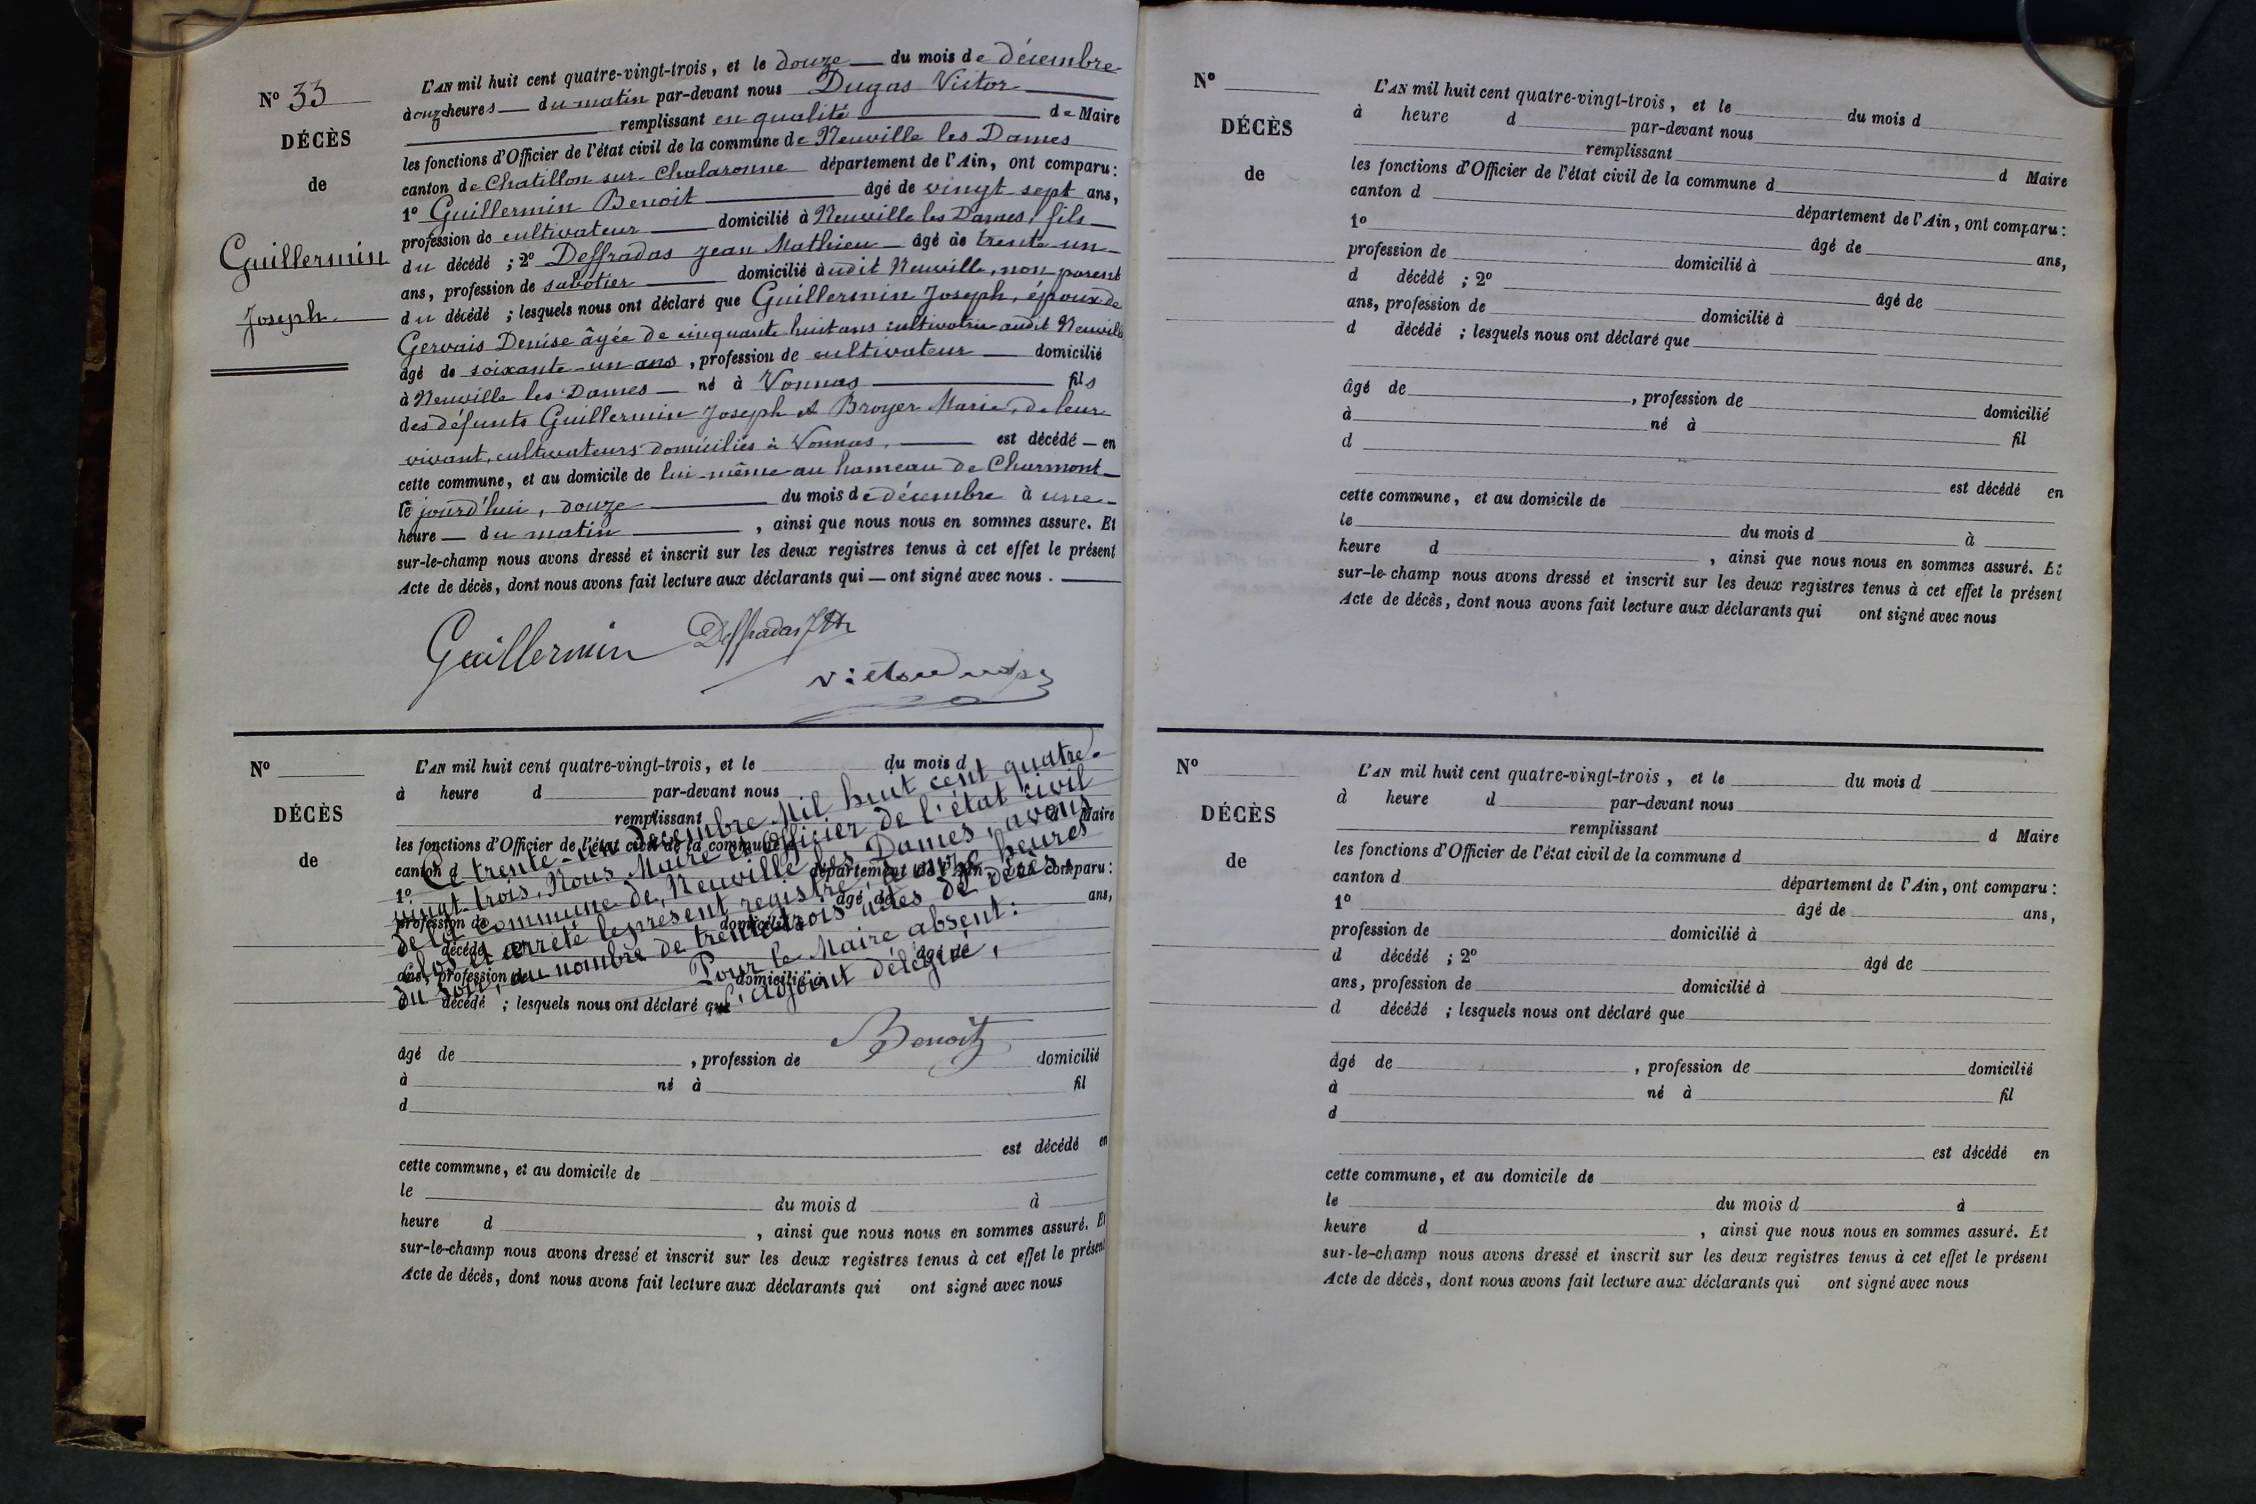 N° 33
DÉCÈS
de
Guillermin
Joseph
L'AN mil huit cent quatre-vingt-trois, et le douze du mois de décembre
à onze heures du matin par-devant nous Dugas Victor
remplissant en qualité de Maire
les fonctions d'Officier de l'état civil de la commune de Neuville les Dames
canton de Chatillon sur Chalaronne département de l'Ain, ont comparu:
1° Guillermin Benoit âgé de vingt sept ans,
profession de cultivateur domicilié à Neuville les Dames, fils
du décédé ; 2° Deffradas Jean Mathieu âgé de trente un
ans, profession de sabotier domicilié audit Neuville, non parent
du décédé ; lesquels nous ont déclaré que Guillermin Joseph, époux de
Gervais Denise âgée de cinquante huit ans cultivatrice audit Neuville
âgé de soixante un ans, profession de cultivateur domicilié
à Neuville les Dames né à Vonnas fils
des défunts Guillermin Joseph et Broyer Marie, de leur
vivant, cultivateurs domiciliés à Vonnas, est décédé en
cette commune, et au domicile de lui-même au hameau de Charmont
le jourd'hui, douze du mois de décembre à une
heure du matin, ainsi que nous nous en sommes assuré. Et
sur-le-champ nous avons dressé et inscrit sur les deux registres tenus à cet effet le présent
Acte de décès, dont nous avons fait lecture aux déclarants qui ont signé avec nous.
Guillermin Deffradas
N°
DÉCÈS
de
L'AN mil huit cent quatre-vingt-trois, et le du mois d
à heure d par-devant nous
remplissant d Maire
les fonctions d'Officier de l'état civil de la commune d
canton d département de l'Ain, ont comparu:
1° âgé de ans,
profession de domicilié à
d décédé ; 2° âgé de
ans, profession de domicilié à
d décédé ; lesquels nous ont déclaré que
Ce trente-un décembre Mil huit cent quatre-
vingt-trois, Nous Maire et Officier de l'état civil
de la commune de Neuville les Dames, avons
clos et arrêté le présent registre, à onze heures
du soir, au nombre de trente trois actes de décès.
Pour le Maire absent:
l'adjoint délégué,
Benoit
âgé de , profession de domicilié
à né à fil
d
est décédé en
cette commune, et au domicile de
le du mois d à
heure d , ainsi que nous nous en sommes assuré. Et
sur-le-champ nous avons dressé et inscrit sur les deux registres tenus à cet effet le présent
Acte de décès, dont nous avons fait lecture aux déclarants qui ont signé avec nous
N°
DÉCÈS
de
L'AN mil huit cent quatre-vingt-trois, et le du mois d
à heure d par-devant nous
remplissant d Maire
les fonctions d'Officier de l'état civil de la commune d
canton d département de l'Ain, ont comparu:
1° âgé de ans,
profession de domicilié à
d décédé ; 2° âgé de
ans, profession de domicilié à
d décédé ; lesquels nous ont déclaré que
âgé de , profession de domicilié
à né à fil
d
est décédé en
cette commune, et au domicile de
le du mois d à
heure d , ainsi que nous nous en sommes assuré. Et
sur-le-champ nous avons dressé et inscrit sur les deux registres tenus à cet effet le présent
Acte de décès, dont nous avons fait lecture aux déclarants qui ont signé avec nous
N°
DÉCÈS
de
L'AN mil huit cent quatre-vingt-trois, et le du mois d
à heure d par-devant nous
remplissant d Maire
les fonctions d'Officier de l'état civil de la commune d
canton d département de l'Ain, ont comparu:
1° âgé de ans,
profession de domicilié à
d décédé ; 2° âgé de
ans, profession de domicilié à
d décédé ; lesquels nous ont déclaré que
âgé de , profession de domicilié
à né à fil
d
est décédé en
cette commune, et au domicile de
le du mois d à
heure d , ainsi que nous nous en sommes assuré. Et
sur-le-champ nous avons dressé et inscrit sur les deux registres tenus à cet effet le présent
Acte de décès, dont nous avons fait lecture aux déclarants qui ont signé avec nous